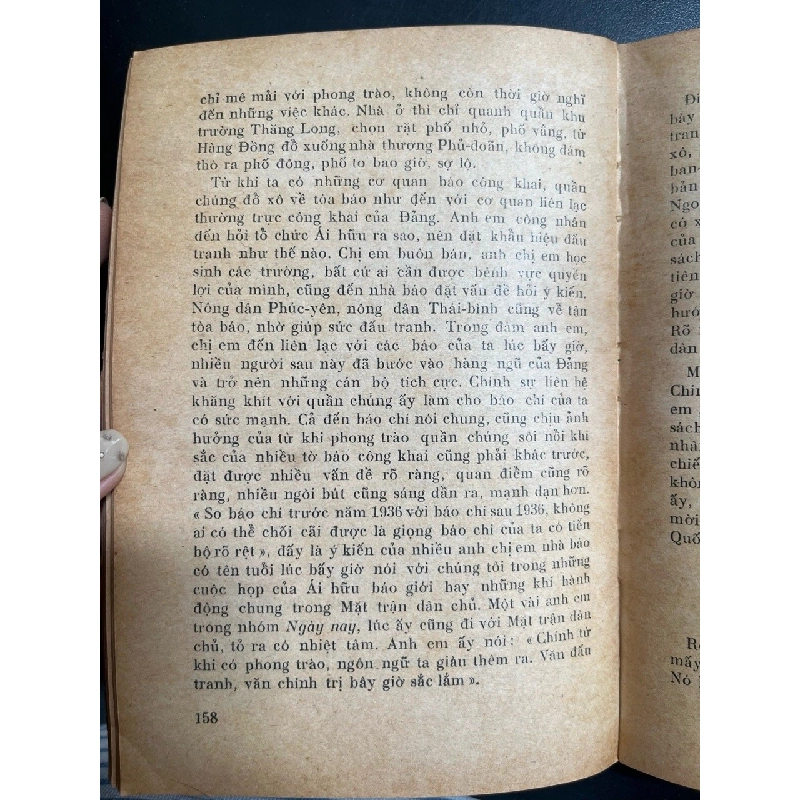 chỉ mê mải với phong trào, không còn thời giờ nghĩ
đến những việc khác. Nhà ở thì chỉ quanh quẩn khu
trường Thăng Long, chọn rặt phố nhỏ, phố vắng, từ
Hàng Đồng đồ xuống nhà thương Phủ-doãn, không dám
thò ra phố đông, phố to bao giờ, sợ lộ.
Từ khi ta có những cơ quan báo công khai, quần
chúng đồ xô về tòa báo như đến với cơ quan liên lạc
thường trực công khai của Đảng. Anh em công nhân
đến hỏi tổ chức Ái hữu ra sao, nên đặt khẩu hiệu đấu
tranh như thế nào. Chị em buôn bán, anh chị em học
sinh các trường, bất cứ ai cần được bênh vực quyền
lợi của mình, cũng đến nhà báo đặt vấn đề hỏi ý kiến.
Nông dân Phúc-yên, nông dân Thái-bình cũng về tận
tòa báo, nhờ giúp sức đấu tranh. Trong đám anh em,
chị em đến liên lạc với các báo của ta lúc bấy giờ,
nhiều người sau này đã bước vào hàng ngũ của Đảng
và trở nên những cán bộ tích cực. Chính sự liên hệ
khăng khít với quần chúng ấy làm cho báo chí của ta
có sức mạnh. Cả đến báo chí nói chung, cũng chịu ảnh
hưởng của từ khi phong trào quần chúng sôi nồi khí
sắc của nhiều tờ báo công khai cũng phải khác trước,
đặt được nhiều vấn đề rõ ràng, quan điểm cũng rõ
ràng, nhiều ngòi bút cũng sáng dần ra, mạnh dạn hơn.
« So báo chí trước năm 1936 với báo chí sau 1936, không
ai có thể chối cãi được là giọng báo chí của ta có tiến
bộ rõ rệt », đấy là ý kiến của nhiều anh chị em nhà báo
có tên tuổi lúc bấy giờ nói với chúng tôi trong những
cuộc họp của Ái hữu báo giới hay những khi hành
động chung trong Mặt trận dân chủ. Một vài anh em
trong nhóm Ngày nay, lúc ấy cũng đi với Mặt trận dân
chủ, tỏ ra có nhiệt tâm. Anh em ấy nói: « Chính từ
khi có phong trào, ngôn ngữ ta giàu thêm ra. Văn đấu
tranh, văn chính trị bây giờ sắc lắm ».
158
bảy
tran
xô,
ban-
bản
Ngo
có x
của
sách
tiên
giờ
hướ
Rõ
dân
M
Chín
em
sách
nhà
chiế
khôn
ấy,
mời
Quố
mấy
Nó